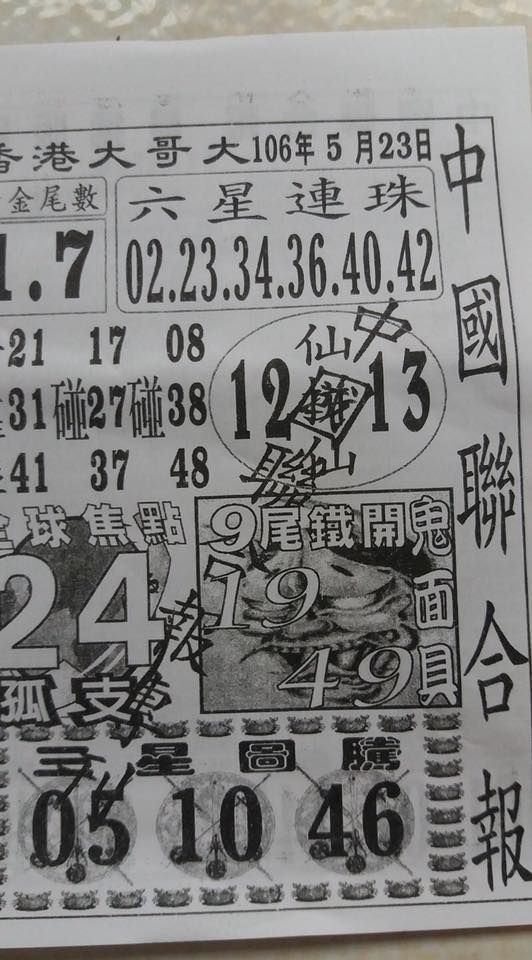 香港大哥大106年5月23日
金尾數
六星連珠
1.7
02.23.34.36.40.42
21 17 08
31碰27碰38
41 37 48
仙
12 13
仙
全球焦點
24
孤支
9尾鐵開
鬼面具
19
49
三星圖騰
05 10 46
中國聯合報